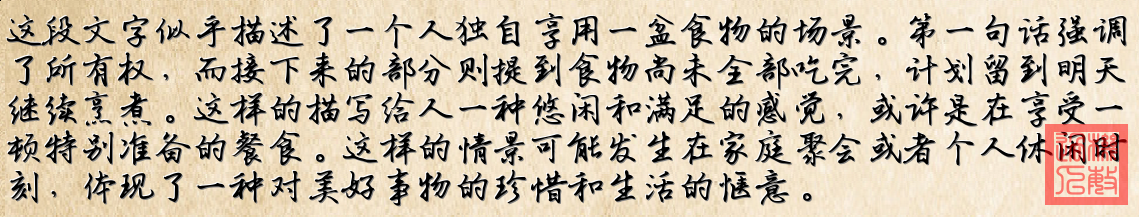 这段文字似乎描述了一个人独自享用一盆食物的场景。第一句话强调
了所有权，而接下来的部分则提到食物尚未全部吃完，计划留到明天
继续烹煮。这样的描写给人一种悠闲和满足的感觉，或许是在享受一
顿特别准备的餐食。这样的情景可能发生在家庭聚会或者个人休闲时
刻，体现了一种对美好事物的珍惜和生活的惬意。